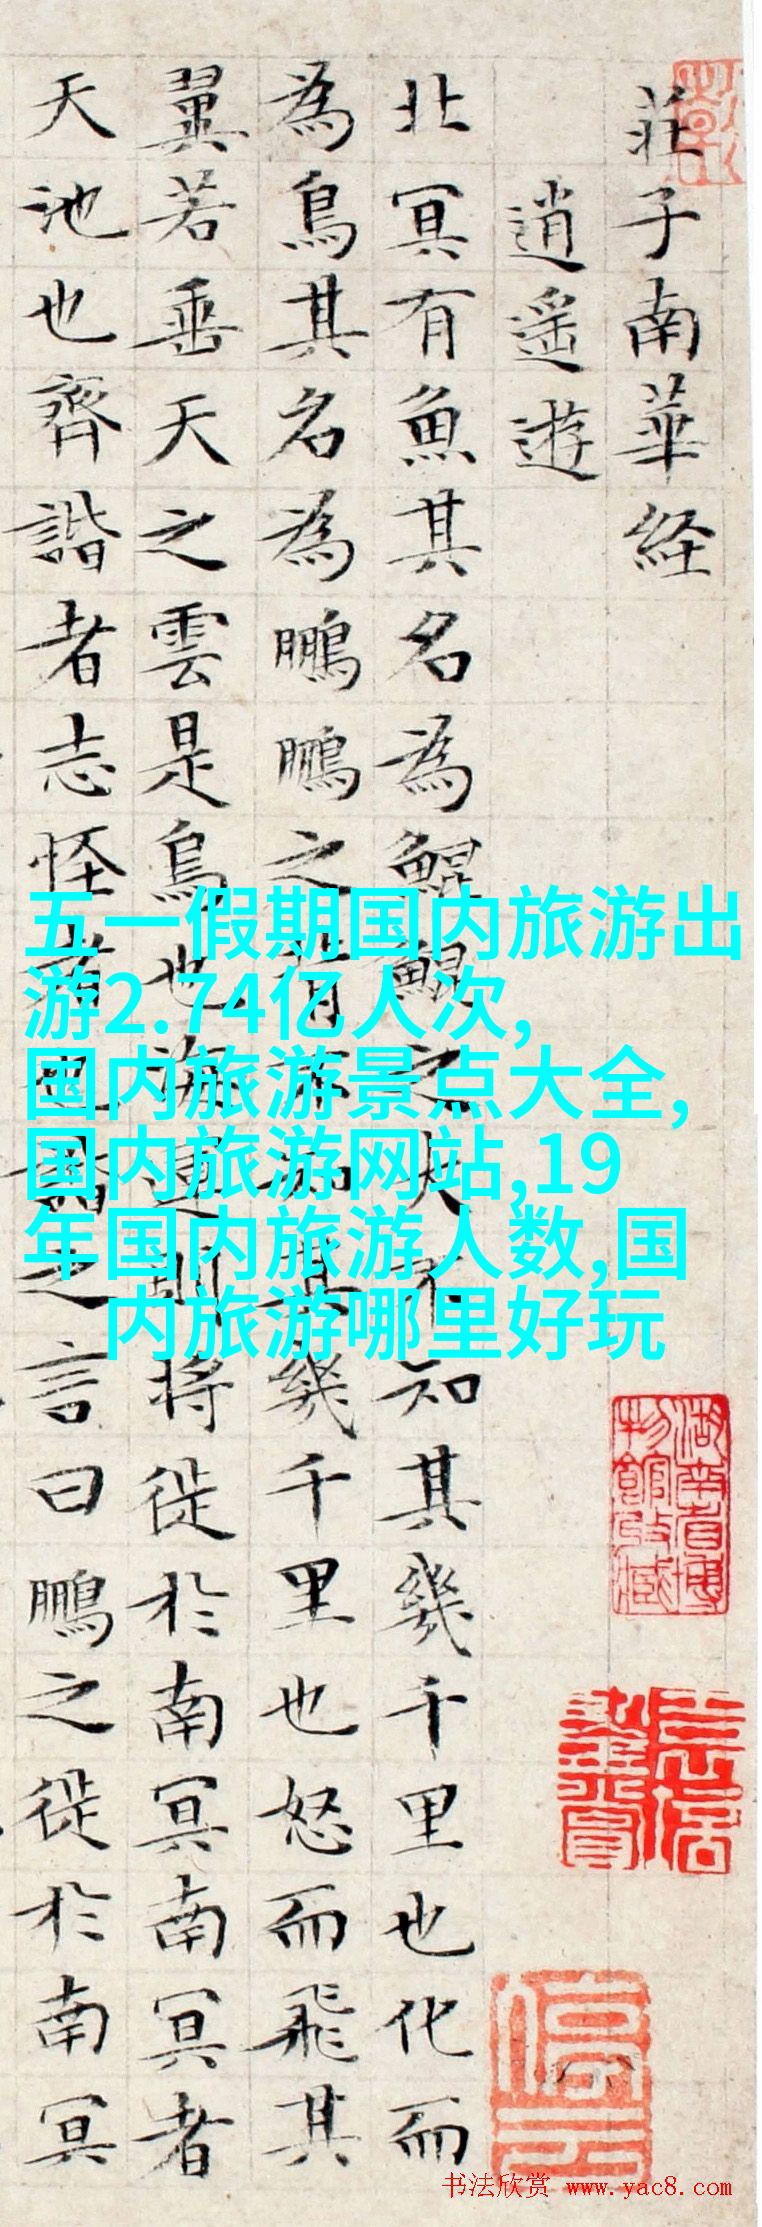 莊子南華経
逍遙遊
北冥有魚其名為鯤鯤之大不知其幾千里也化而
為鳥其名為鵬鵬之背不知其幾千里也怒而飛其
翼若垂天之雲是鳥也海運則將徙於南冥南冥者
天池也齊諧者志怪者也諧之言曰鵬之徙於南冥
五一假期国内旅游出
游2.74亿人次,
国内旅游景点大全,
国内旅游网站,19
年国内旅游人数,国
内旅游哪里好玩
湖南省博
物館收藏
书法欣赏 www.yac8.com